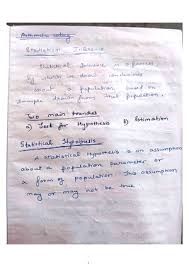 Statistical Inference
Statistical Inference is a process
by which we draw conclusions
about a population based on
sample drawn from that population.
Two main branches
a) Test for Hypothesis b) Estimation
Statistical Hypothesis
A statistical Hypothesis is an assumption
about a population parameter or
a form of population. This assumption
may or may not be true